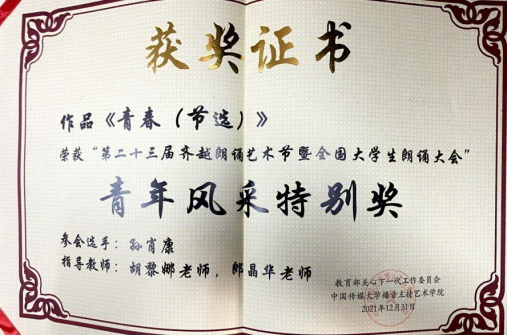 获奖证书
作品《青春（节选）》
荣获“第二十三届齐越朗诵艺术节暨全国大学生朗诵大会”
青年风采特别奖
参会选手：孙肖康
指导教师：胡黎娜老师，郎晶华老师
教育部关心下一代工作委员会
中国传媒大学播音主持艺术学院
2021年12月31日